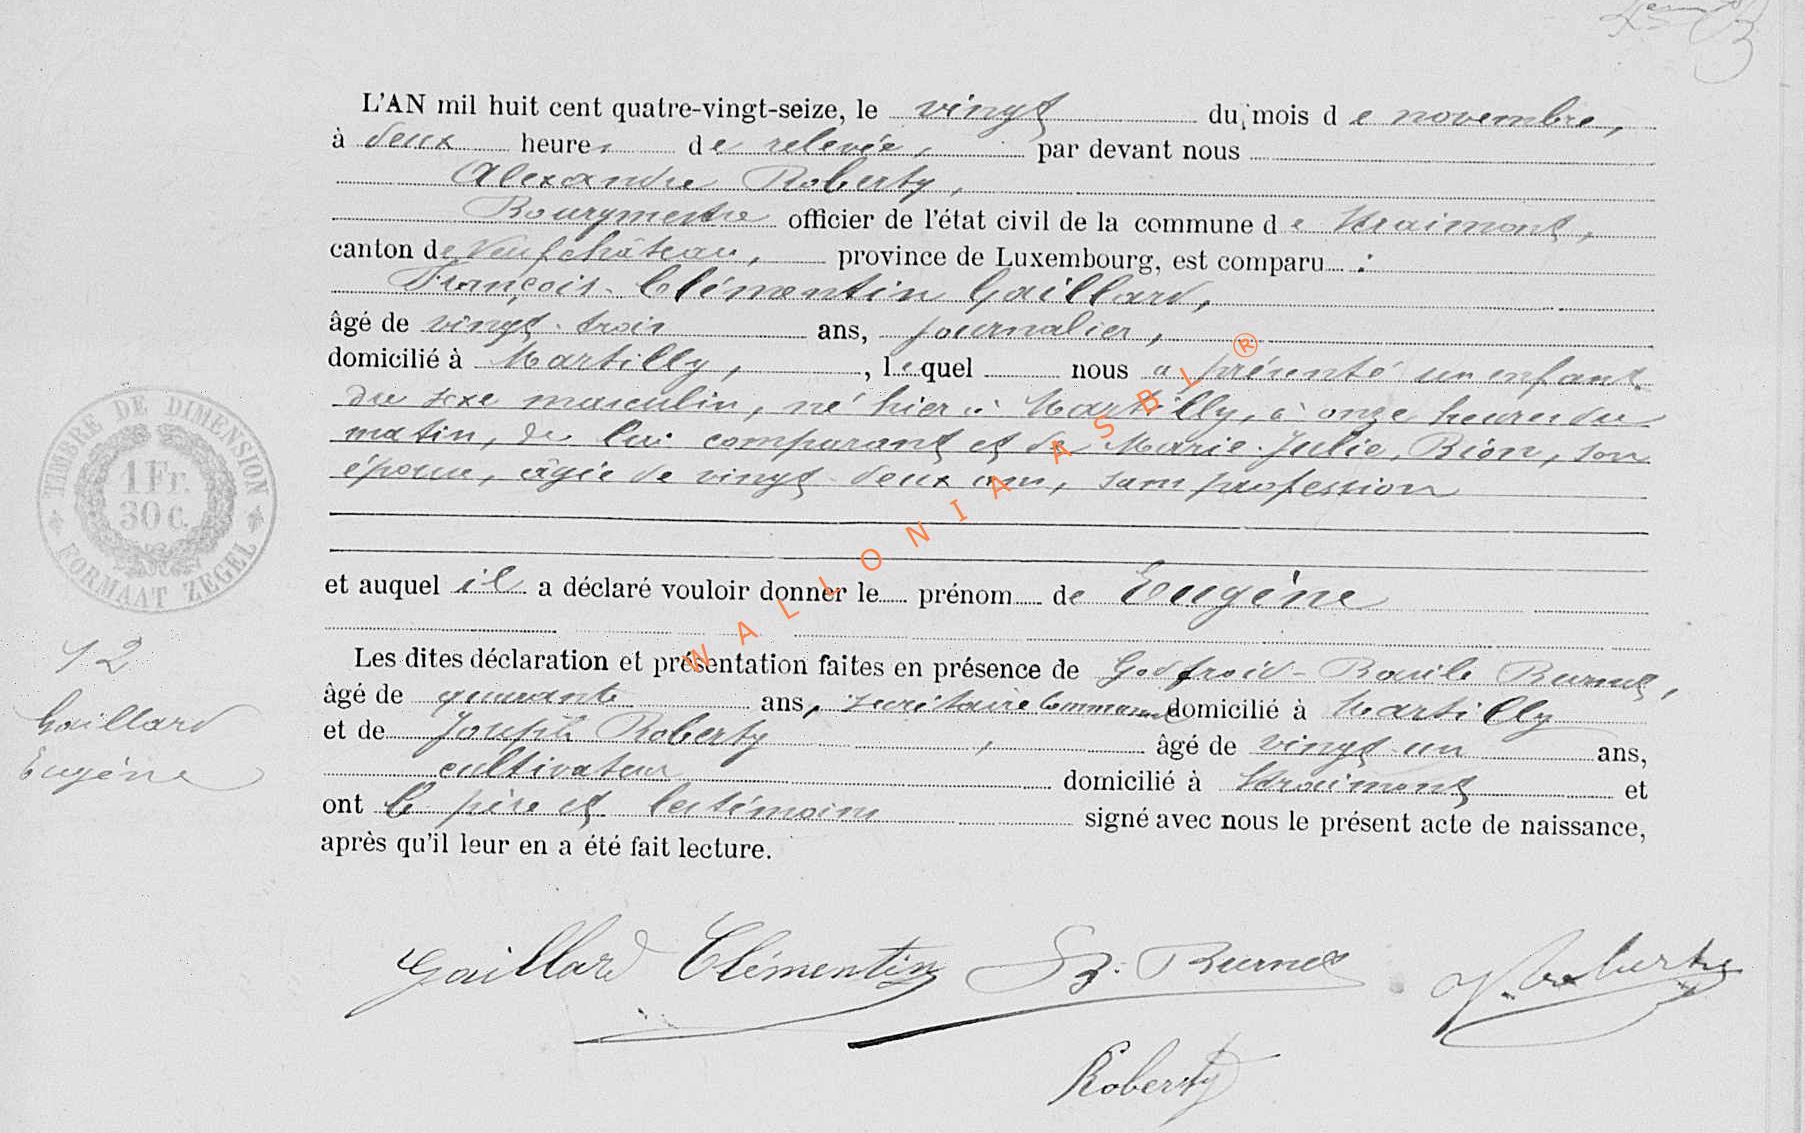 L'AN mil huit cent quatre-vingt-seize, le vingt du mois de novembre,
à deux heures de relevée, par devant nous
Alexandre Roberty,
Bourgmestre officier de l'état civil de la commune de Straimont,
canton de Neufchâteau, province de Luxembourg, est comparu :
François-Clémentin Gaillard,
âgé de vingt-trois ans, journalier,
domicilié à Martilly, , lequel nous a présenté un enfant
du sexe masculin, né hier à Martilly, à onze heures du
matin, de lui comparant et de Marie-Julie, Bion, son
épouse, âgée de vingt-deux ans, sans profession
et auquel il a déclaré vouloir donner le prénom de Eugène
Les dites déclaration et présentation faites en présence de Godfroid-Basile Burnet,
âgé de quarante ans, secrétaire communal domicilié à Martilly
et de Joseph Roberty, âgé de vingt-un ans,
cultivateur domicilié à Straimont et
ont le père et les témoins signé avec nous le présent acte de naissance,
après qu'il leur en a été fait lecture.
TIMBRE DE DIMENSION
1 Fr.
30 c.
FORMAAT ZEGEL
12
Gaillard
Eugène
Gaillard Clémentin B. Burnet J. Roberty
Roberty
WALLONIA ASBL ®